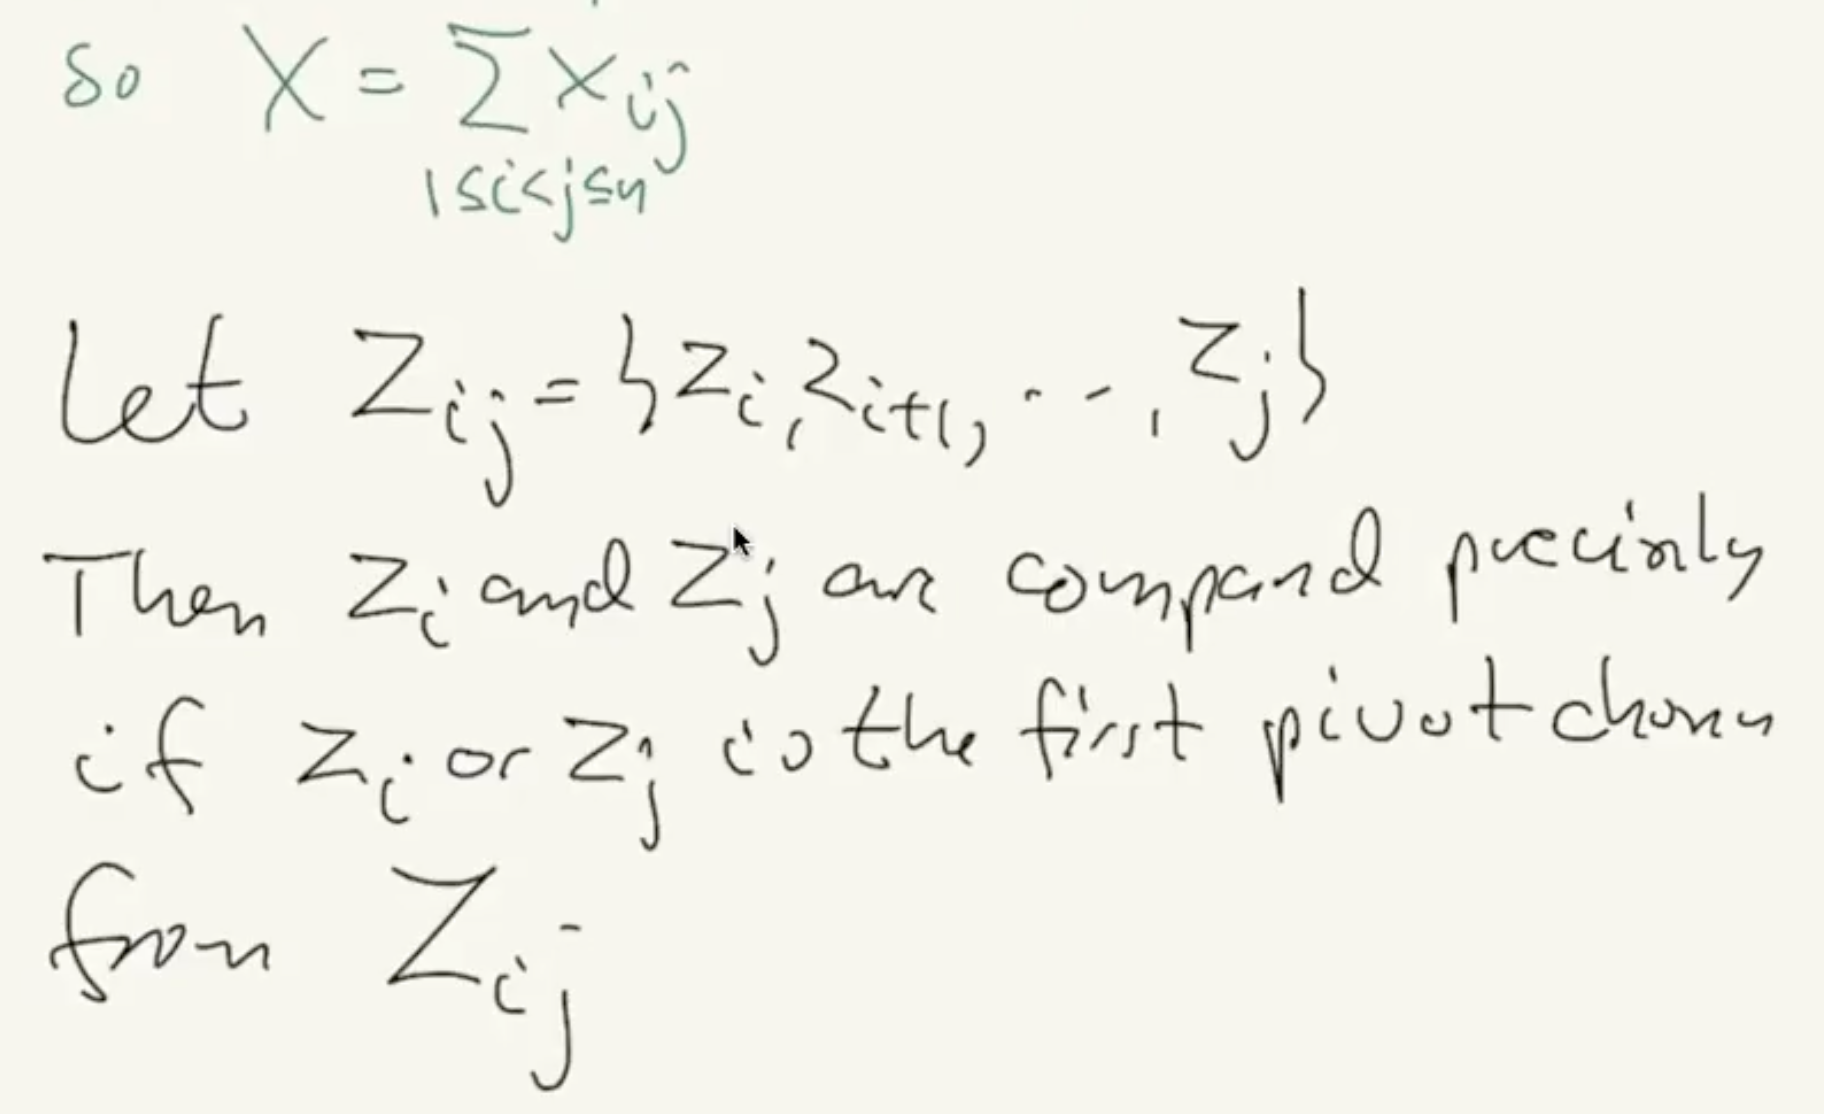 so X = Σ X ij
1≤i<j≤n
Let Zij = {zi, zi+1, ..., zj}
Then zi and zj are compared precisely
if zi or zj is the first pivot chosen
from Zij